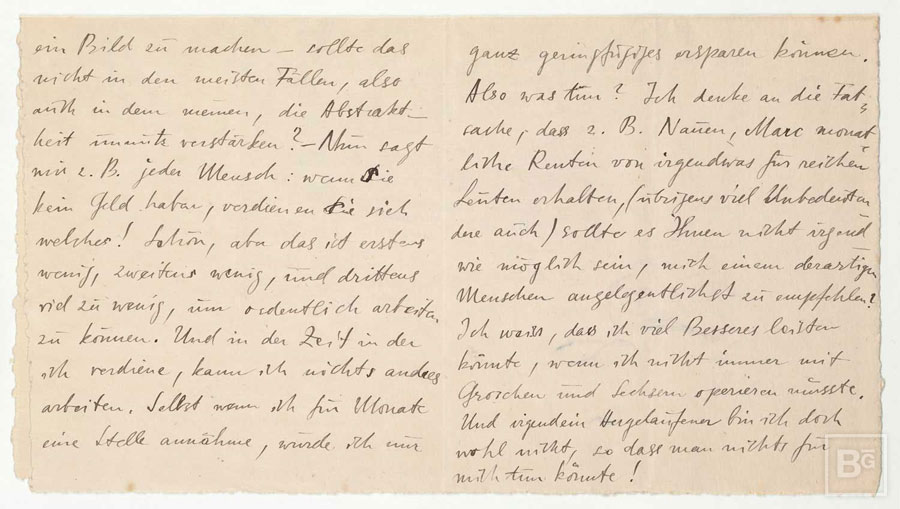 ein Bild zu machen – sollte das
nicht in den meisten Fällen, also
auch in dem meinen, die Abstrakt-
heit unnütz verstärken? – Nun sagt
mir z. B. jeder Mensch: wenn Sie
kein Geld haben, verdienen Sie sich
welches! Schön, aber das ist erstens
wenig, zweitens wenig, und drittens
viel zu wenig, um ordentlich arbeiten
zu können. Und in der Zeit in der
ich verdiene, kann ich nichts andres
arbeiten. Selbst wenn ich für Monate
eine Stelle annähme, würde ich nur
ganz geringfügiges ersparen können.
Also was tun? Ich denke an die Tat-
sache, dass z. B. Nauen, Marc monat-
liche Renten von irgendwas für reichen
Leuten erhalten, (übrigens viel Unbedeuten
dere auch) sollte es Ihnen nicht irgend
wie möglich sein, mich einem derartigen
Menschen angelegentlichst zu empfehlen?
Ich weiss, dass ich viel Besseres leisten
könnte, wenn ich nicht immer mit
Groschen und Sechsern operieren müsste.
Und irgendein Hergelaufener bin ich doch
wohl nicht, so dass man nichts für
mich tun könnte!
BG